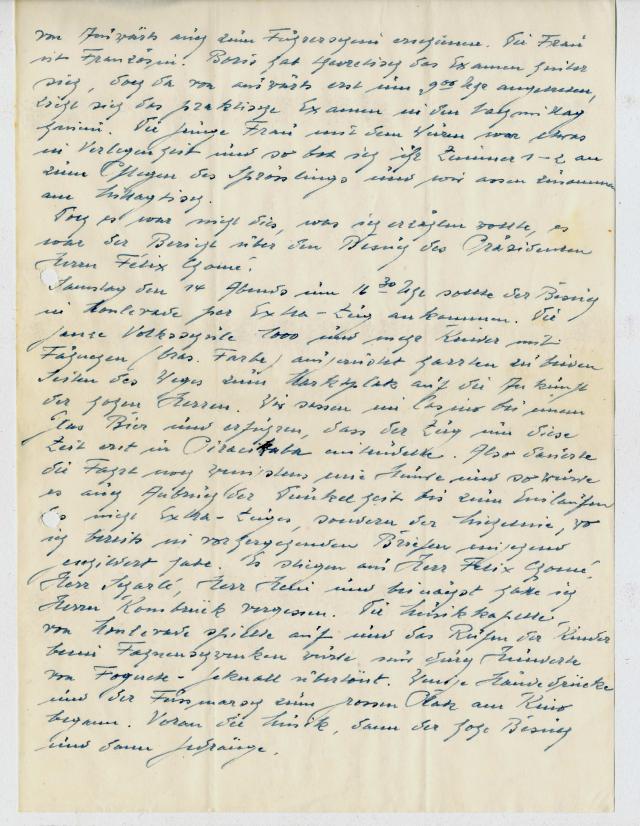 von Auswärts auch zum Führerschein erschienen. Die Frau
ist Französin. Boris hat theoretisch das Examen hinter
sich, doch da von auswärts erst um 9.00 Uhr angetreten,
zieht sich das praktische Examen in den Nachmittag
hinein. Die junge Frau mit dem Kleinen war etwas
in Verlegenheit und so bot ich ihr Zimmer 1-2 an
zum Pflegen des Sprösslings und wir assen zusammen
am Mittagtisch.
Doch es war nicht dies, was ich erzählen wollte, es
war der Bericht über den Besuch des Präsidenten
Herrn Félix Chomé.
Samstag den 14 Abends um 16 30 Uhr sollte der Besuch
in Monlevade per Extra-Zug ankommen. Die
ganze Volksschule 1000 und mehr Kinder mit
Fähnchen (bras. Farbe) ausgerüstet harrten zu beiden
Seiten des Weges zum Marktplatz auf die Ankunft
der hohen Herren. Wir sassen im Casino bei einem
Glas Bier und erfuhren, dass der Zug um diese
Zeit erst in Piracikaba eintrudelte. Also dauerte
die Fahrt noch wenigstens eine Stunde und so wurde
es auch Anbruch der Dunkelheit bis zum Einlaufen
des nicht Extra-Zuges, sondern der wo
ich bereits in vorhergehenden Briefen eingehend
geschildert habe. Es stiegen aus Herr Félix Chomé,
Herr Herr Hein und beinahe hätte ich
Herrn Konsbrück vergessen. Die Musikkapelle
von Monlevade spielte auf und das Rufen der Kinder
beim Fahnenschwenken wurde nur durch Hunderte
von Foguete-Geknall übertönt. Händedrücke
und der Fussmarsch zum grossen Platz am Kino
begann. Voran die Musik, dann der hohe Besuch
und dann Gedränge.